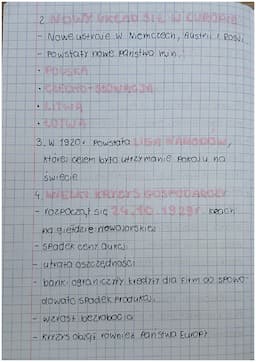 2. NOWY UKŁAD SIŁ W EUROPIE
- Nowe ustroje w Niemczech, Austrii i Rosji
- Powstały nowe państwa m.in.
• POLSKA
• CZECHOSŁOWACJA
• LITWA
• ŁOTWA
3. W 1920r. Powstała LIGA NARODÓW,
której celem było utrzymanie pokoju na
świecie
4. WIELKI KRYZYS GOSPODARCZY
- rozpoczął się 24.10.1929r. krach
na giełdzie nowojorskiej
- spadek ceny akcji
- utrata oszczędności
- banki ograniczyły kredyty dla firm co spowo-
dowało spadek produkcji
- wzrost bezrobocia
- kryzys objął również państwa Europy